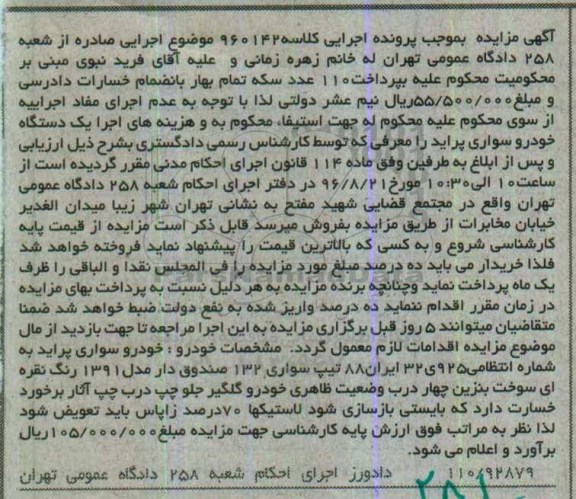 آگهی مزایده بموجب پرونده اجرایی کلاسه۹۶۰۱۴۲ موضوع اجرایی صادره از شعبه
۲۵۸ دادگاه عمومی تهران له خانم زهره زمانی و علیه آقای فرید نبوی مبنی بر
محکومیت محکوم علیه بپرداخت۱۱۰ عدد سکه تمام بهار بانضمام خسارات دادرسی
و مبلغ۵۵/۵۰۰/۰۰۰ریال نیم عشر دولتی لذا با توجه به عدم اجرای مفاد اجراییه
از سوی محکوم علیه محکوم له جهت استیفا، محکوم به و هزینه های اجرا یک دستگاه
خودرو سواری پراید را معرفی که توسط کارشناس رسمی دادگستری بشرح ذیل ارزیابی
و پس از ابلاغ به طرفین وفق ماده ۱۱۴ قانون اجرای احکام مدنی مقرر گردیده است از
ساعت۱۰ الی۱۰:۳۰ مورخ۹۶/۸/۲۱ در دفتر اجرای احکام شعبه ۲۵۸ دادگاه عمومی
تهران واقع در مجتمع قضایی شهید مفتح به نشانی تهران شهر زیبا میدان الغدیر
خیابان مخابرات از طریق مزایده بفروش میرسد قابل ذکر است مزایده از قیمت پایه
کارشناسی شروع و به کسی که بالاترین قیمت را پیشنهاد نماید فروخته خواهد شد
فلذا خریدار می باید ده درصد مبلغ مورد مزایده را فی المجلس نقدا و الباقی را ظرف
یک ماه پرداخت نماید وچنانچه برنده مزایده به هر دلیل نسبت به پرداخت بهای مزایده
در زمان مقرر اقدام ننماید ده درصد واریز شده به نفع دولت ضبط خواهد شد ضمنا
متقاضیان میتوانند ۵ روز قبل برگزاری مزایده به این اجرا مراجعه تا جهت بازدید از مال
موضوع مزایده اقدامات لازم معمول گردد. مشخصات خودرو : خودرو سواری پراید به
شماره انتظامی۹۲۵ی۳۲ ایران۸۸ تیپ سواری ۱۳۲ صندوق دار مدل۱۳۹۱ رنگ نقره
ای سوخت بنزین چهار درب وضعیت ظاهری خودرو گلگیر جلو چپ درب چپ آثار برخورد
خسارت دارد که بایستی بازسازی شود لاستیکها ۷۰درصد زاپاس باید تعویض شود
لذا نظر به مراتب فوق ارزش پایه کارشناسی جهت مزایده مبلغ۱۰۵/۰۰۰/۰۰۰ریال
برآورد و اعلام می شود.
۱۱۰/۹۲۸۷۹ دادورز اجرای احکام شعبه ۲۵۸ دادگاه عمومی تهران